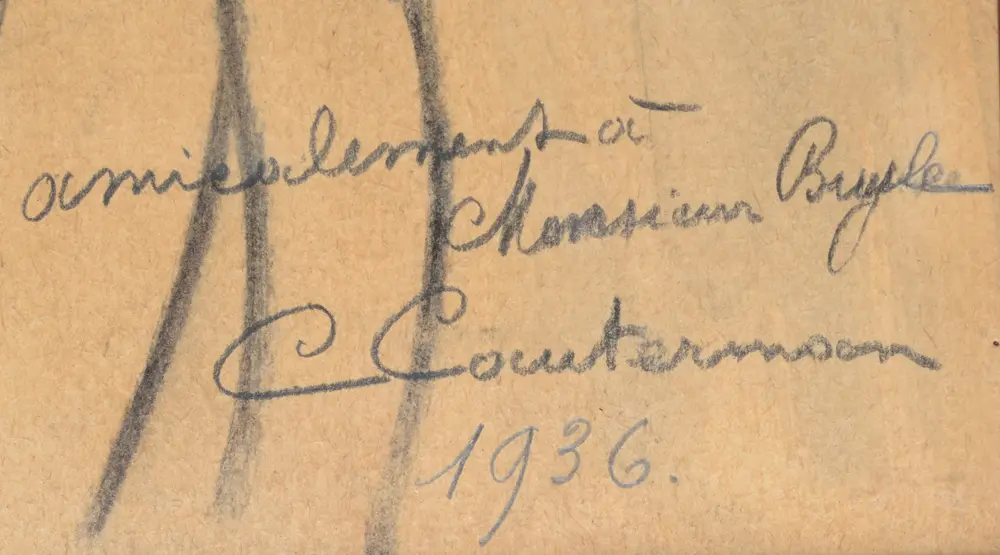 amicalement à
Monsieur
C Cauterman
1936.